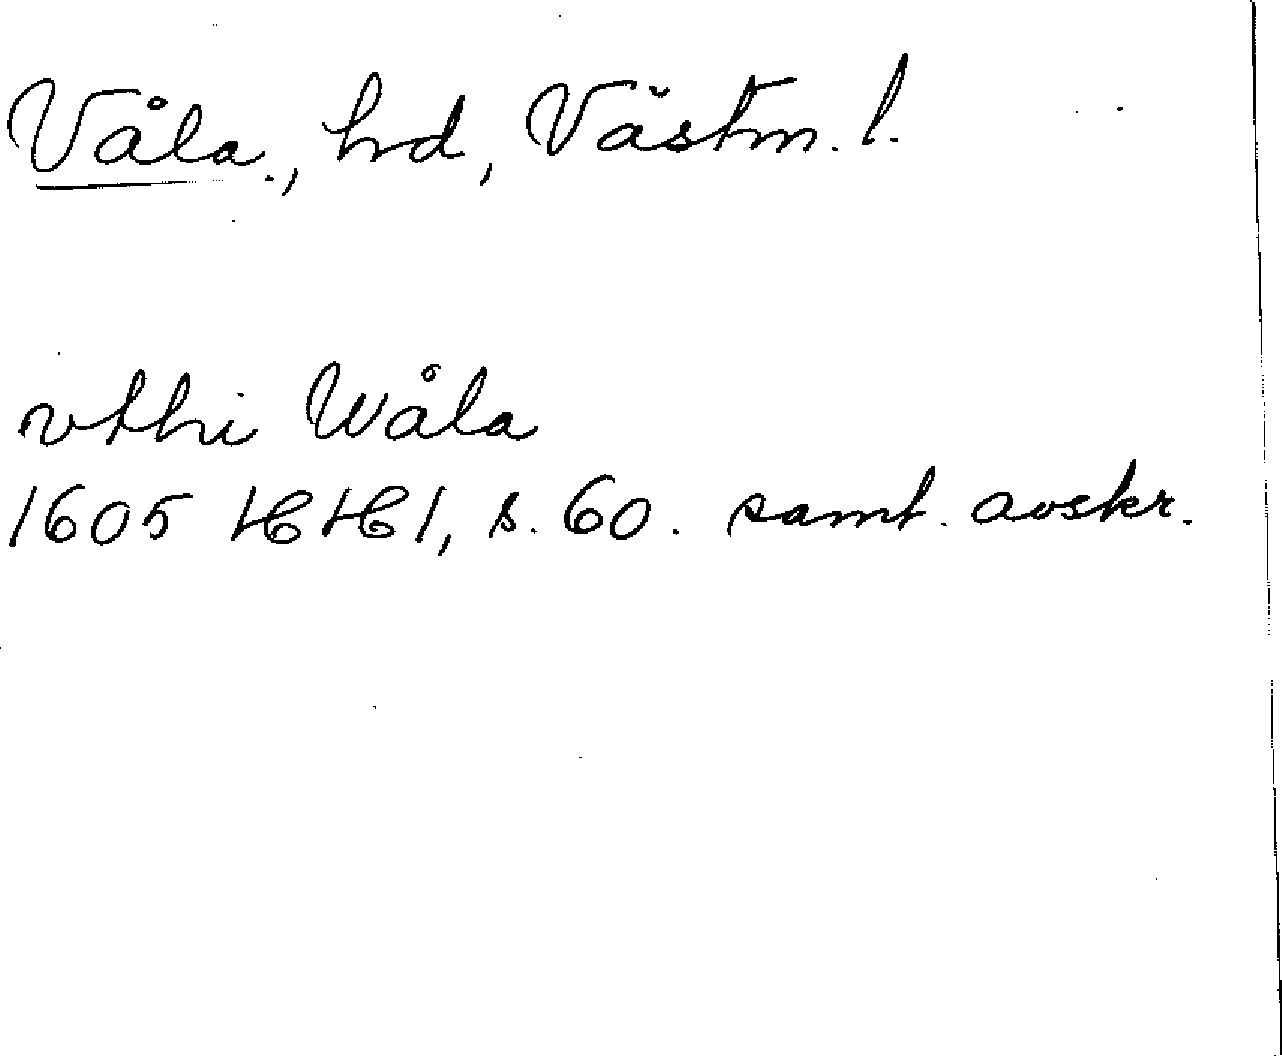 Våla, hd, Västm. l.
vthi Wåla
1605 HH 1, s. 60. samt. avskr.